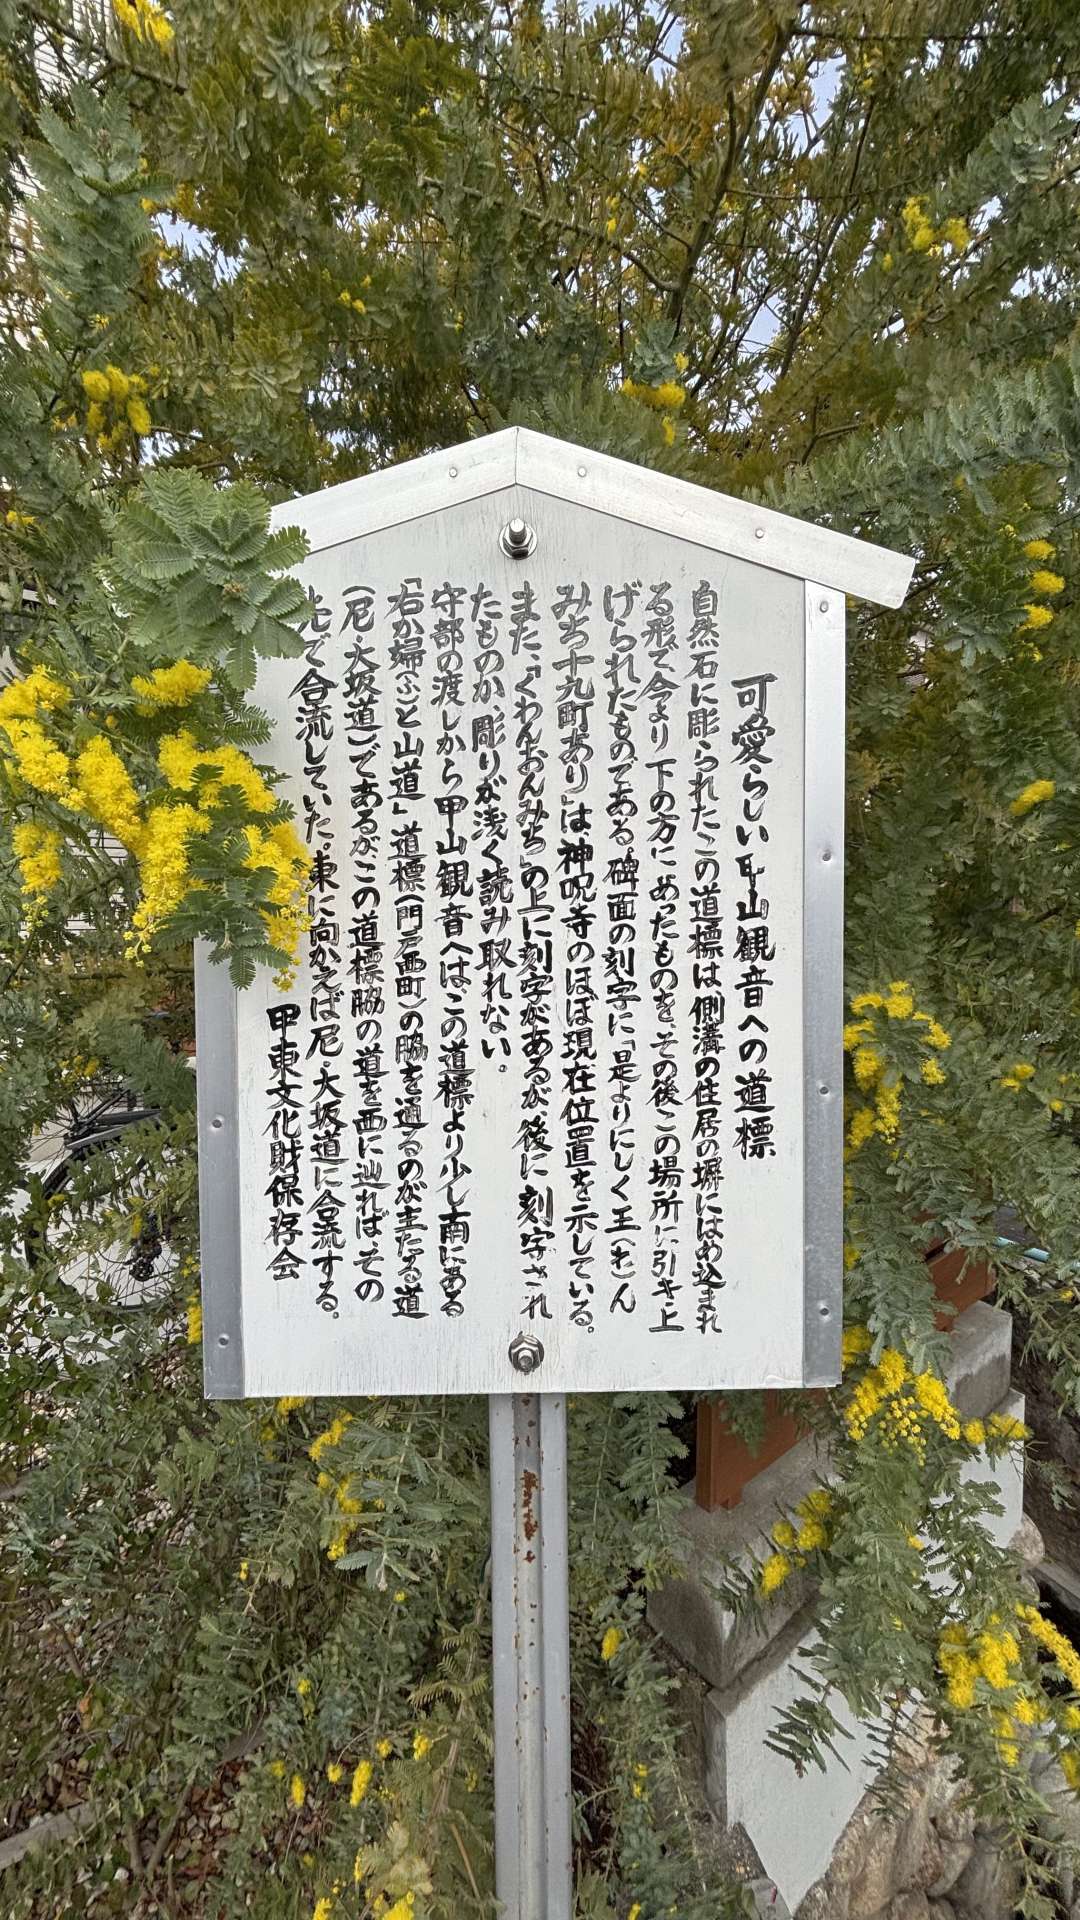 可愛らしい甲山観音への道標
自然石に彫られたこの道標は側溝の住居の塀にはめ込まれ
る形で今より下の方にあったものを、その後この場所に引き上
げられたものである。碑面の刻字に「是よりにしく王(わ)ん
みち十九町あり」は、神呪寺のほぼ現在位置を示している。
また、「くわんおんみち」の上に刻字があるが、後に刻字され
たものか、彫りが浅く読み取れない。
守部の渡しから甲山観音へは、この道標より少し南にある
「右か婦(ぶ)と山道」道標(門戸西町)の脇を通るのが主たる道
(尼・大坂道)であるが、この道標脇の道を西に辿れば、その
先で合流していた。東に向かえば尼・大坂道に合流する。
甲東文化財保存会